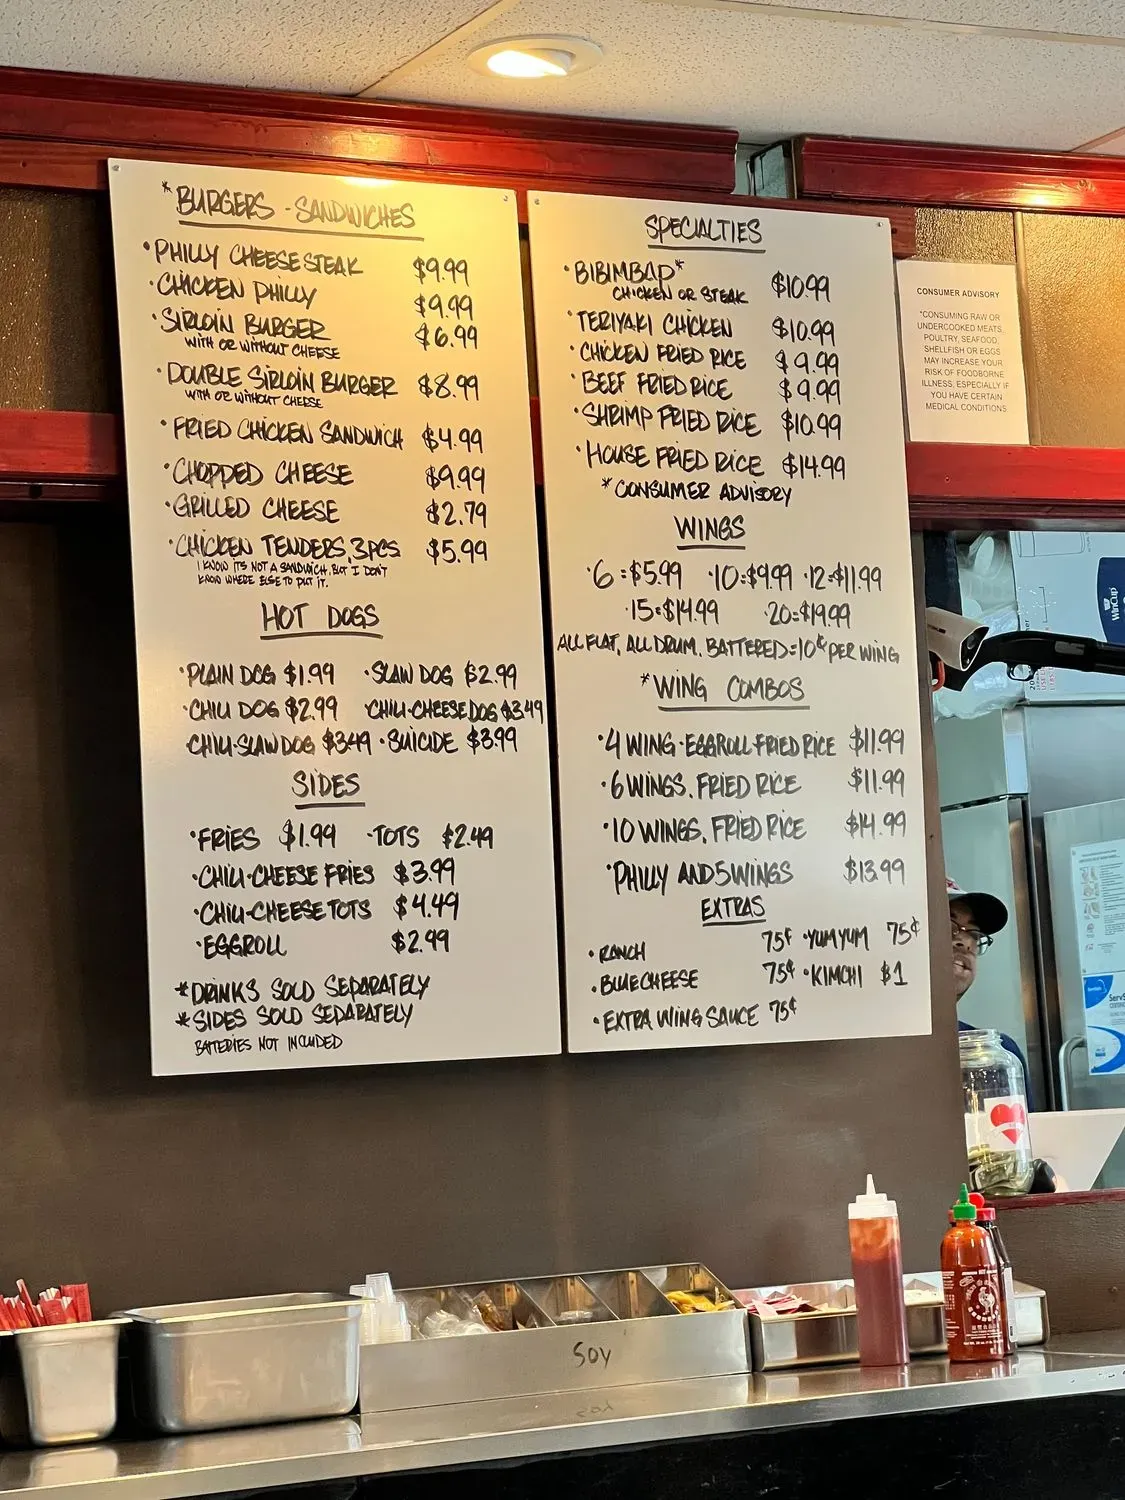 *BURGERS - SANDWICHES
·PHILLY CHEESESTEAK $9.99
·CHICKEN PHILLY $9.99
·SIRLOIN BURGER $6.99
WITH OR WITHOUT CHEESE
·DOUBLE SIRLOIN BURGER $8.99
WITH OR WITHOUT CHEESE
·FRIED CHICKEN SANDWICH $4.99
·CHOPPED CHEESE $9.99
·GRILLED CHEESE $2.79
·CHICKEN TENDERS, 3PCS $5.99
I KNOW ITS NOT A SANDWICH, BUT I DON'T
KNOW WHERE ELSE TO PUT IT.
HOT DOGS
·PLAIN DOG $1.99 ·SLAW DOG $2.99
·CHILI DOG $2.99 ·CHILI-CHEESE DOG $3.49
·CHILI-SLAW DOG $3.49 ·SUICIDE $3.99
SIDES
·FRIES $1.99 ·TOTS $2.49
·CHILI-CHEESE FRIES $3.99
·CHILI-CHEESE TOTS $4.49
·EGGROLL $2.99
*DRINKS SOLD SEPARATELY
*SIDES SOLD SEPARATELY
BATTERIES NOT INCLUDED
SPECIALTIES
·BIBIMBAP* $10.99
CHICKEN OR STEAK
·TERIYAKI CHICKEN $10.99
·CHICKEN FRIED RICE $9.99
·BEEF FRIED RICE $9.99
·SHRIMP FRIED RICE $10.99
·HOUSE FRIED RICE $14.99
*CONSUMER ADVISORY
WINGS
·6=$5.99 ·10=$9.99 ·12=$11.99
·15=$14.99 ·20=$19.99
ALL FLAT, ALL DRUM, BATTERED=10¢ PER WING
*WING COMBOS
·4 WING·EGGROLL·FRIED RICE $11.99
·6 WINGS, FRIED RICE $11.99
·10 WINGS, FRIED RICE $14.99
·PHILLY AND 5 WINGS $13.99
EXTRAS
·RANCH 75¢ ·YUM YUM 75¢
·BLUE CHEESE 75¢ ·KIMCHI $1
·EXTRA WING SAUCE 75¢
CONSUMER ADVISORY
*CONSUMING RAW OR
UNDERCOOKED MEATS,
POULTRY, SEAFOOD,
SHELLFISH OR EGGS
MAY INCREASE YOUR
RISK OF FOODBORNE
ILLNESS, ESPECIALLY IF
YOU HAVE CERTAIN
MEDICAL CONDITIONS
WinCup
SOY